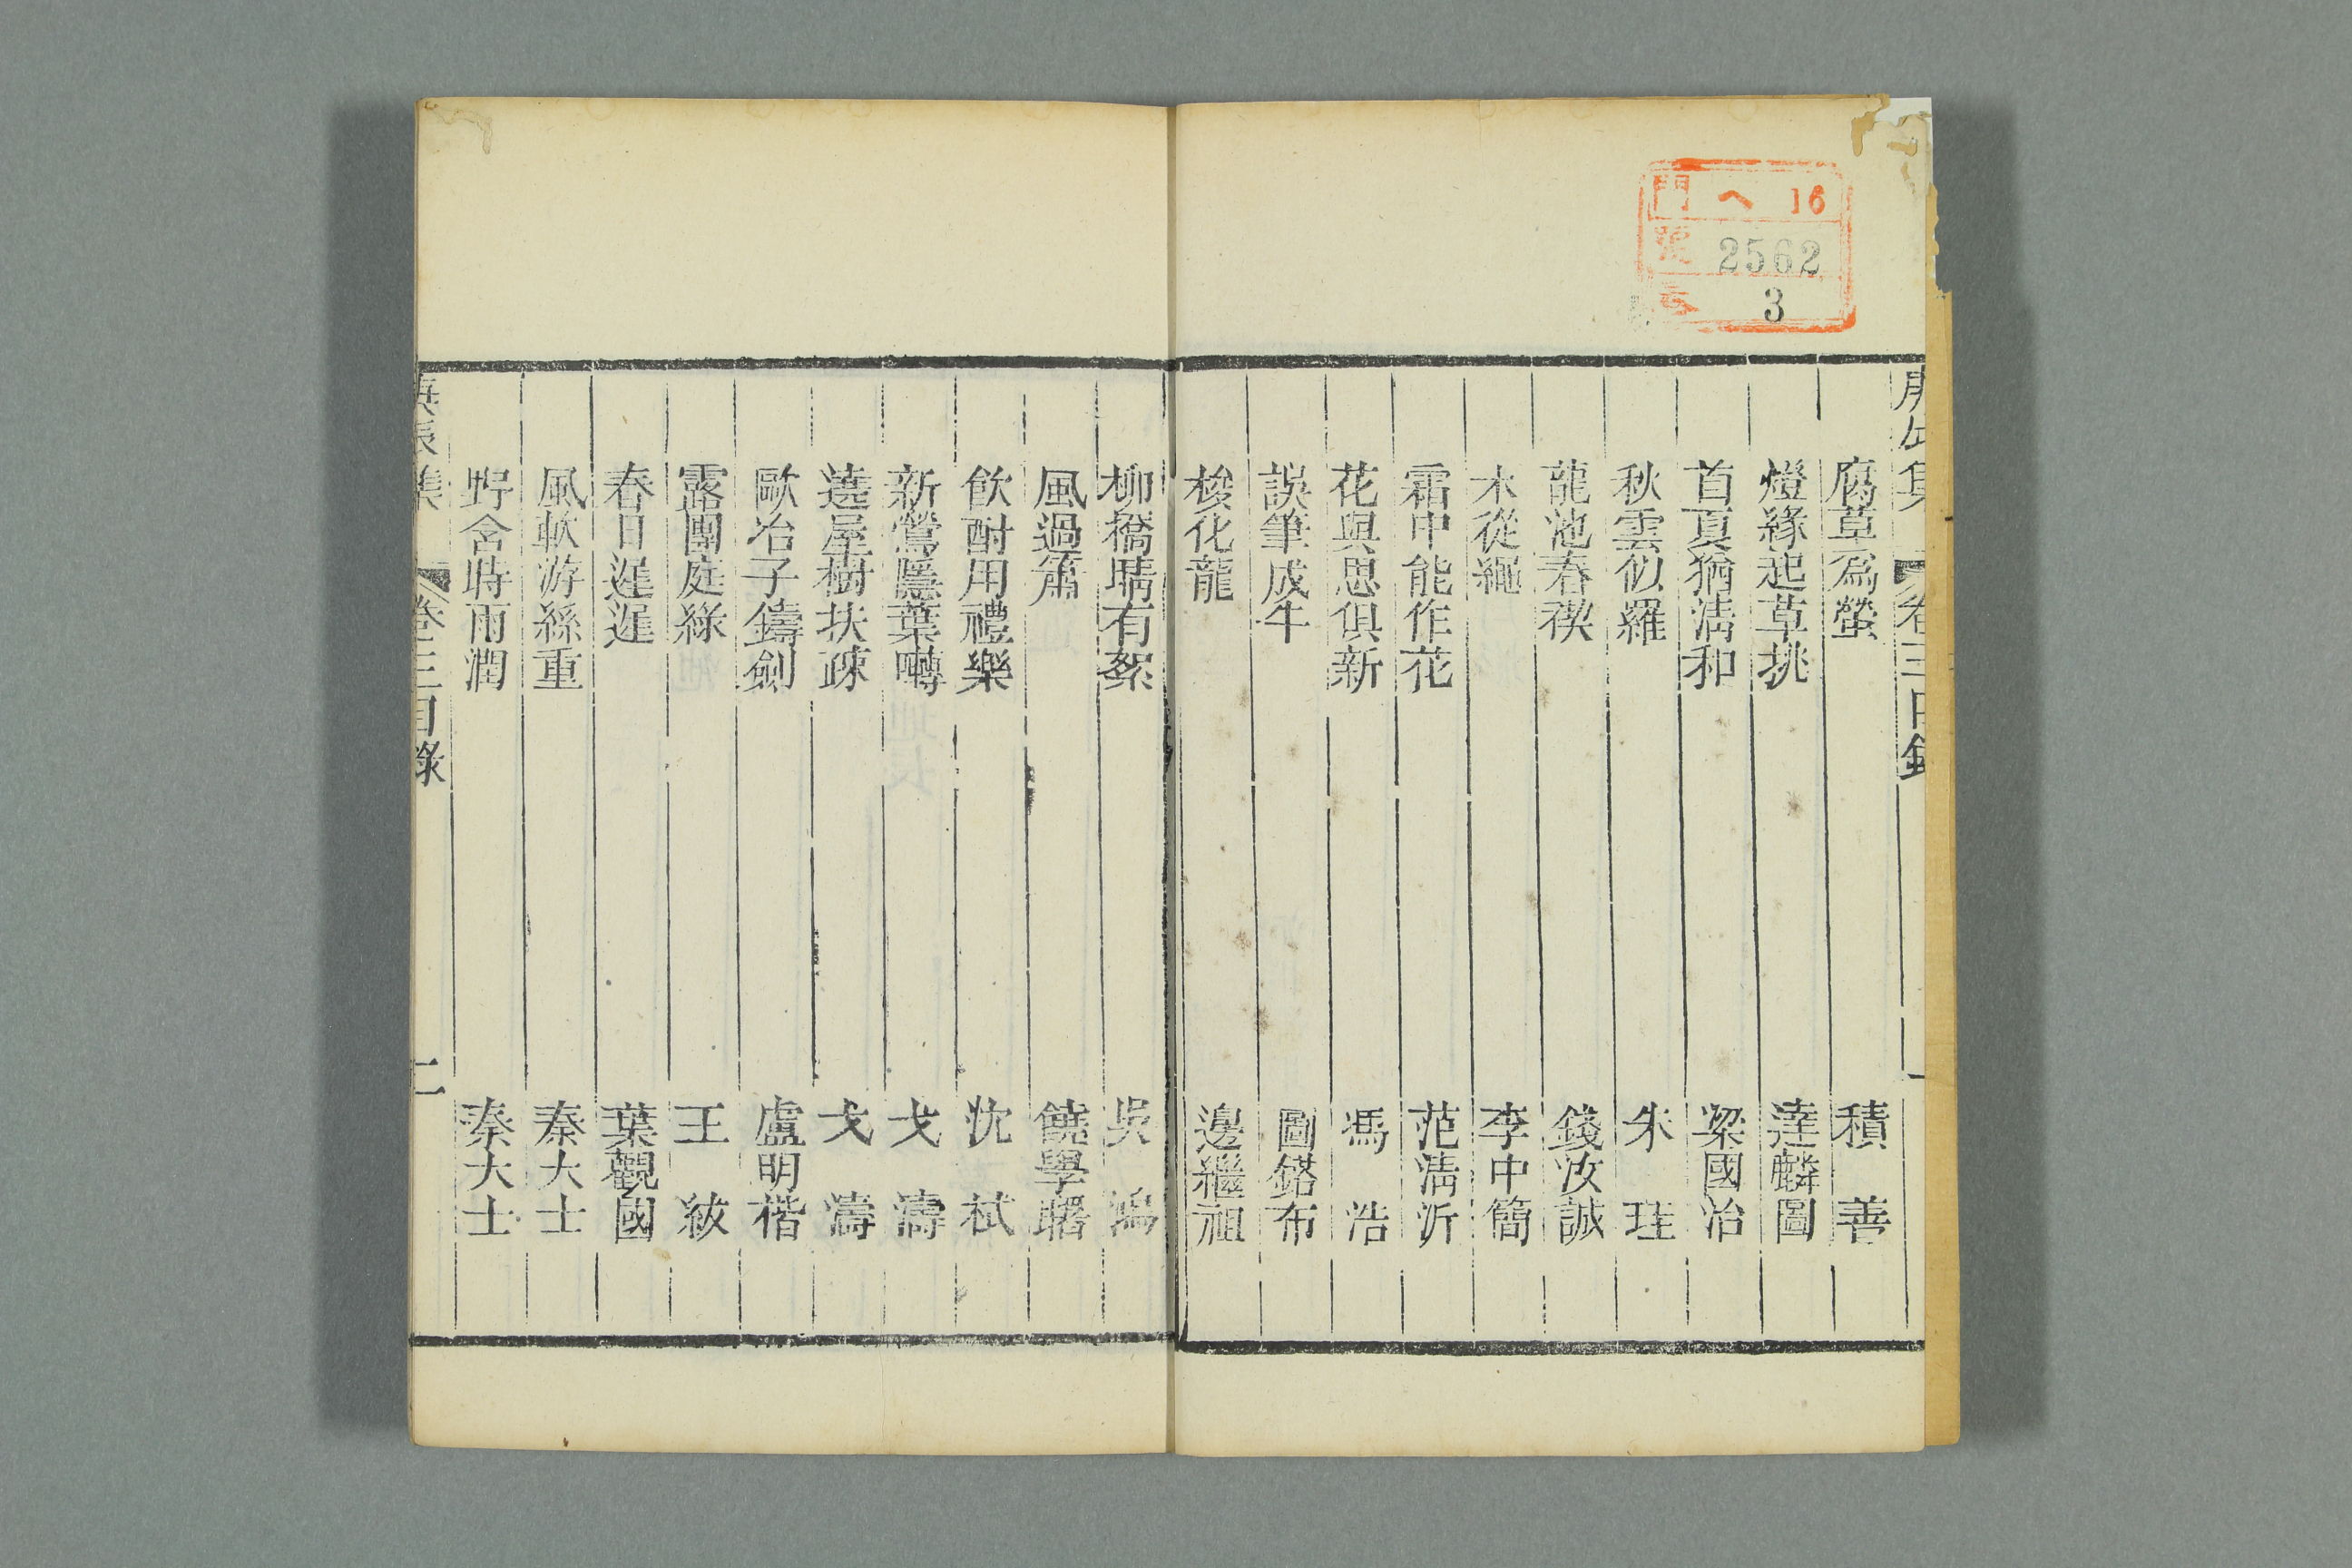 門 ヘ 16
號 2562
3
卷三目錄
一
腐草爲螢 積善
燈緣起草挑 達麟圖
首夏猶淸和 梁國治
秋雲似羅 朱珪
龍池春禊 錢汝誠
木從繩 李中簡
霜中能作花 范淸沂
花與思俱新 馮浩
誤筆成牛 圖鎝布
梭化龍 邊繼祖
柳橋晴有絮 吳鴻
風過簫 饒學曙
飮酎用禮樂 沈栻
新鶯隱葉囀 戈濤
遶屋樹扶疎 戈濤
歐冶子鑄劍 盧明楷
露團庭綠 王紱
春日遲遲 葉觀國
風軟游絲重 秦大士
野含時雨潤 秦大士
庚辰集 卷三目錄 二